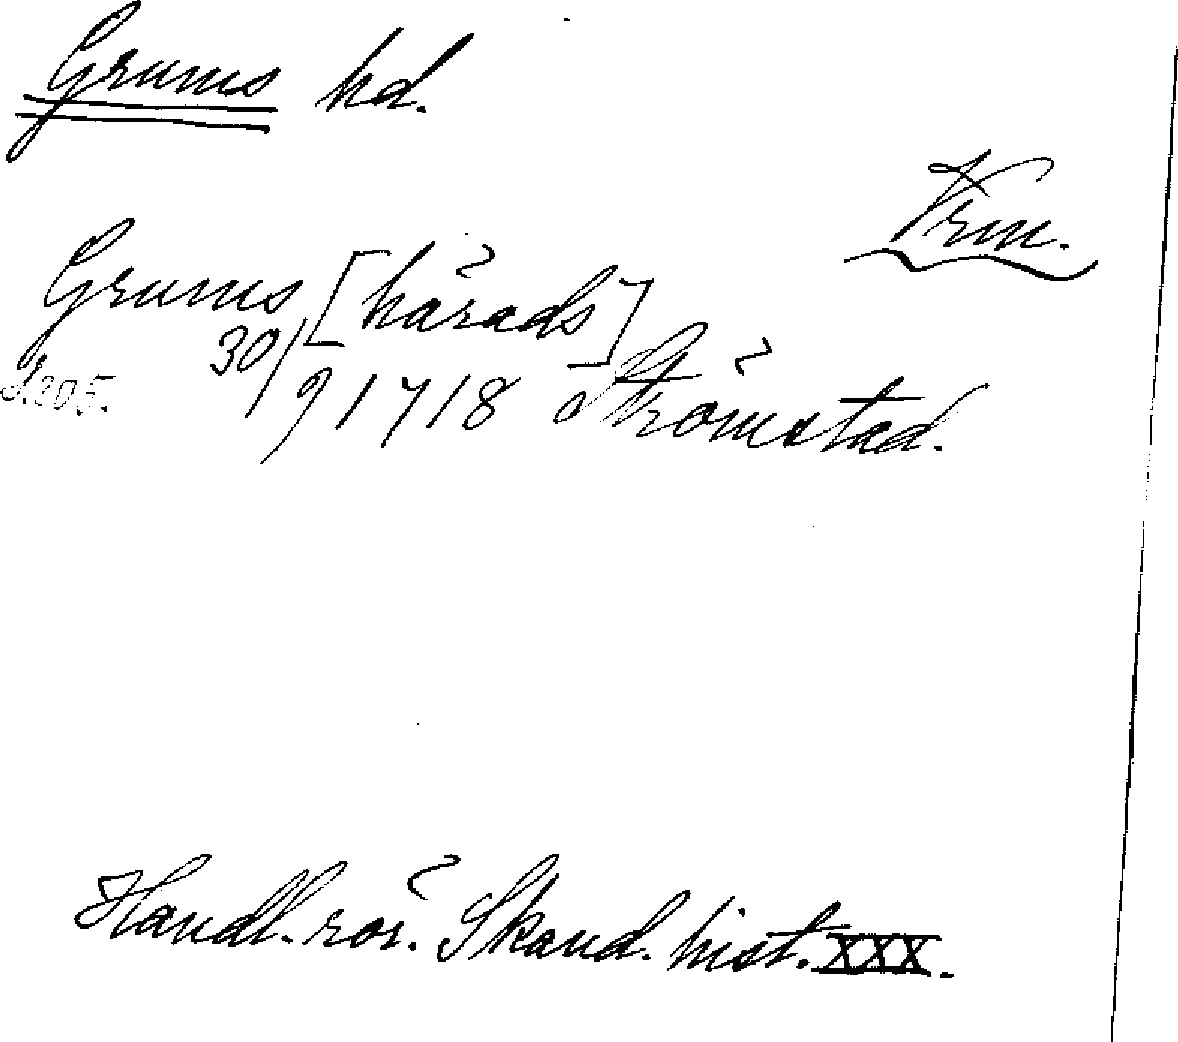 Grums hd.
Vrm.
Grums [härads]
S.205. 30/9 1718 Strömstad.
Handl. rör. Skand. hist. XXX.